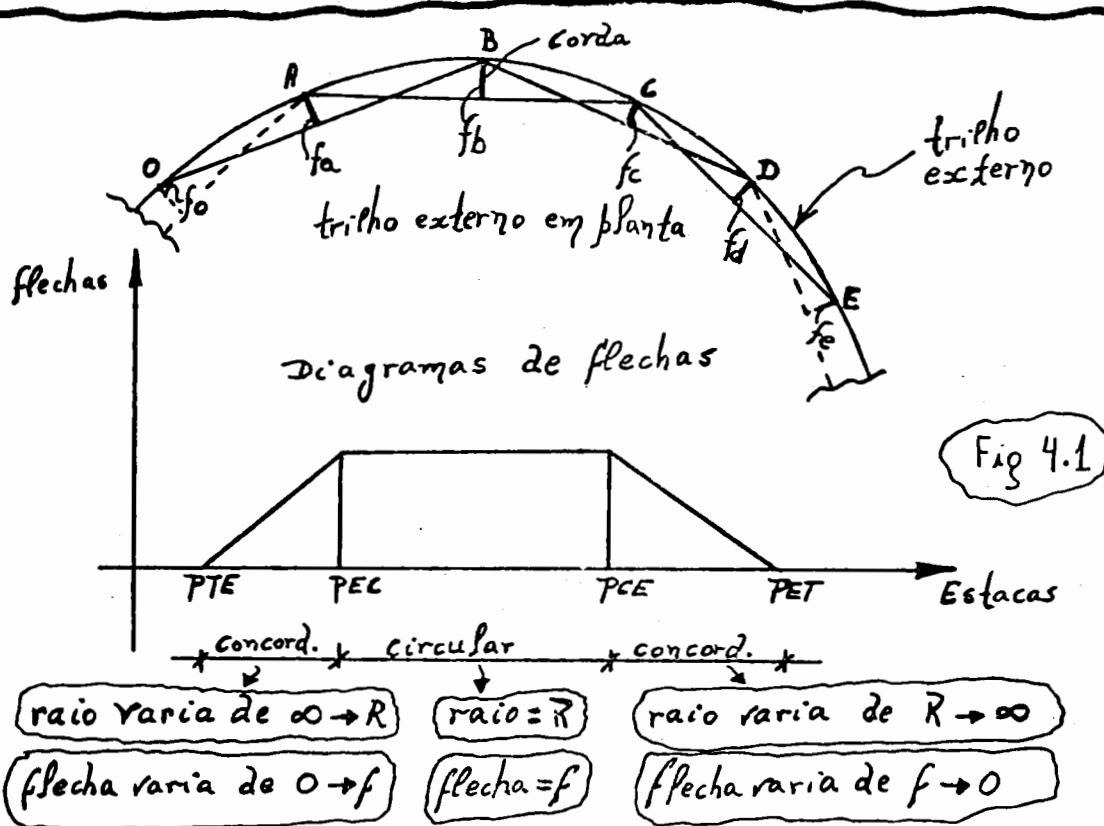 B corda
A
C
O
fo
fa
fb
fc
D
fd
E
fe
trilho
externo
trilho externo em planta
flechas
Diagramas de flechas
Fig 4.1
PTE PEC PCE PET
Estacas
concord. circular concord.
raio varia de ∞ → R raio = R raio varia de R → ∞
flecha varia de 0 → f flecha = f flecha varia de f → 0